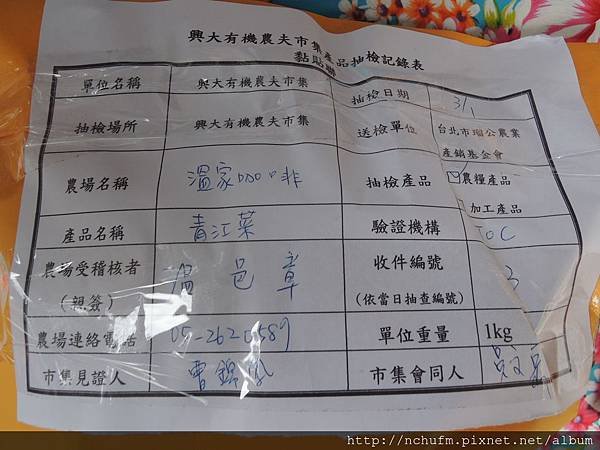 興大有機農夫市集產品抽檢記錄表
黏貼聯
單位名稱 興大有機農夫市集 抽檢日期 3/1
抽檢場所 興大有機農夫市集 送檢單位 台北市瑠公農業
產銷基金會
農場名稱 溫家咖啡 抽檢產品 農糧產品
加工產品
產品名稱 青江菜 驗證機構 TOC
農場受稽核者
(親簽) 溫邑章 收件編號
(依當日抽查編號) 3
農場連絡電話 05-2620589 單位重量 1kg
市集見證人 曾錦 市集會同人
http://nchufm.pixnet.net/album